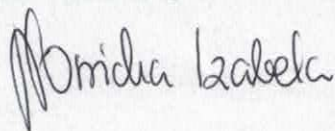 Monicha Izabela